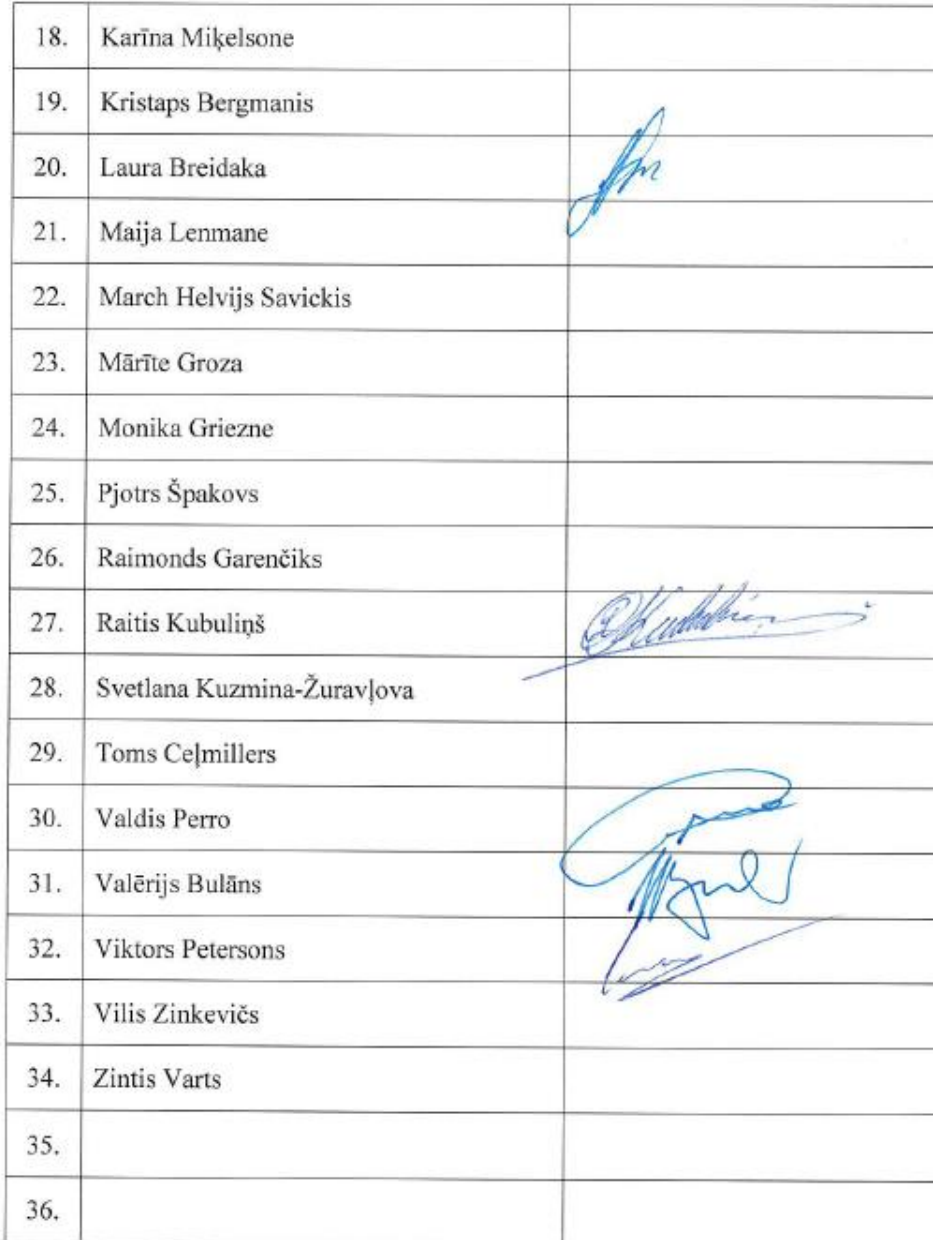 18. Karīna Miķelsone
19. Kristaps Bergmanis
20. Laura Breidaka
21. Maija Lenmane
22. March Helvijs Savickis
23. Mārīte Groza
24. Monika Griezne
25. Pjotrs Špakovs
26. Raimonds Garenčiks
27. Raitis Kubuliņš
28. Svetlana Kuzmina-Žuravļova
29. Toms Ceļmillers
30. Valdis Perro
31. Valērijs Bulāns
32. Viktors Petersons
33. Vilis Zinkevičs
34. Zintis Varts
35.
36.